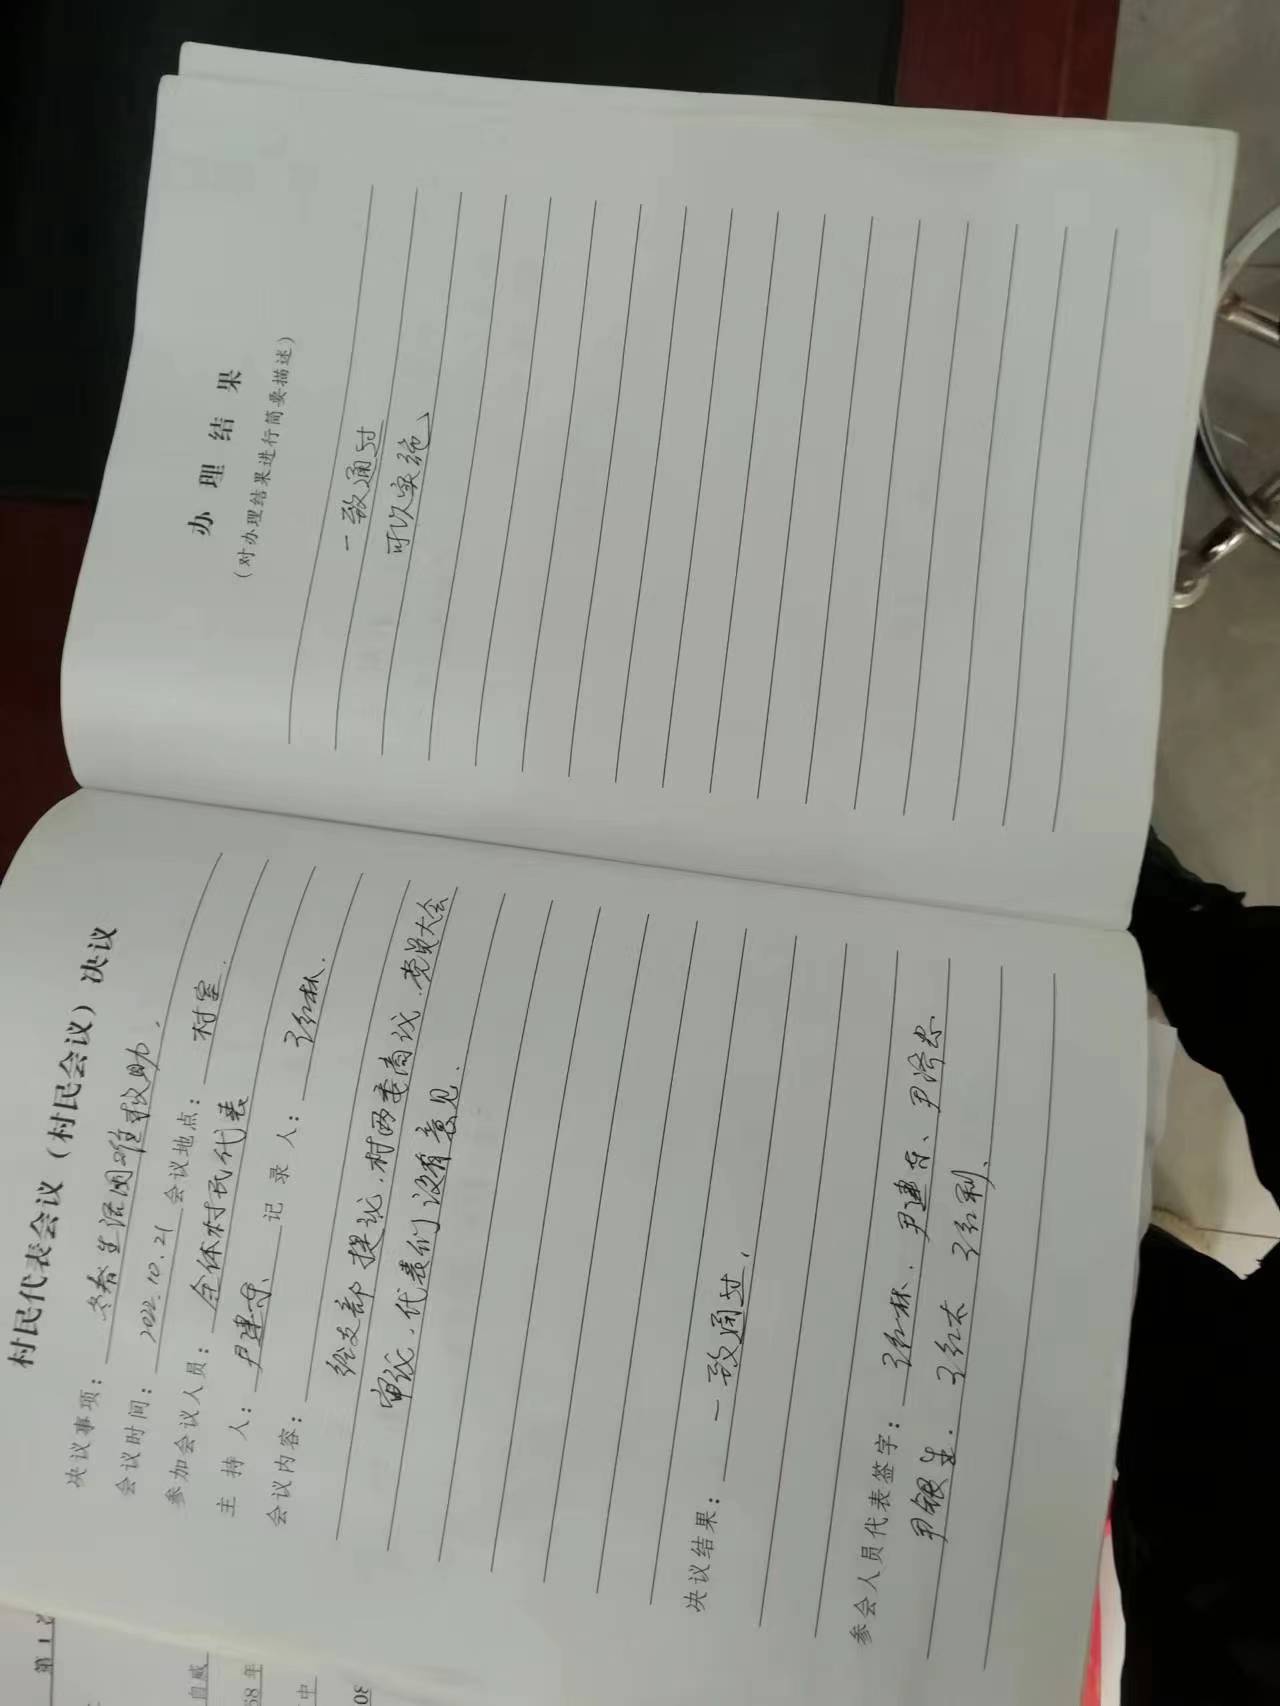 村民代表会议（村民会议）决议
决议事项：冬春生活困难救助，
会议时间：2022.10.21 会议地点：村室.
参加会议人员：全体村民代表
主持人：尹建安、记录人：张红林.
会议内容：
经支部提议.村两委商议.党员大会
审议.代表们没有意见.
决议结果：一致通过，
参会人员代表签字：张红林.尹建安、尹
尹银生.张红太 张红利、
办理结果
（对办理结果进行简要描述）
一致通过
可以实施、
第1
自咸
58年
中